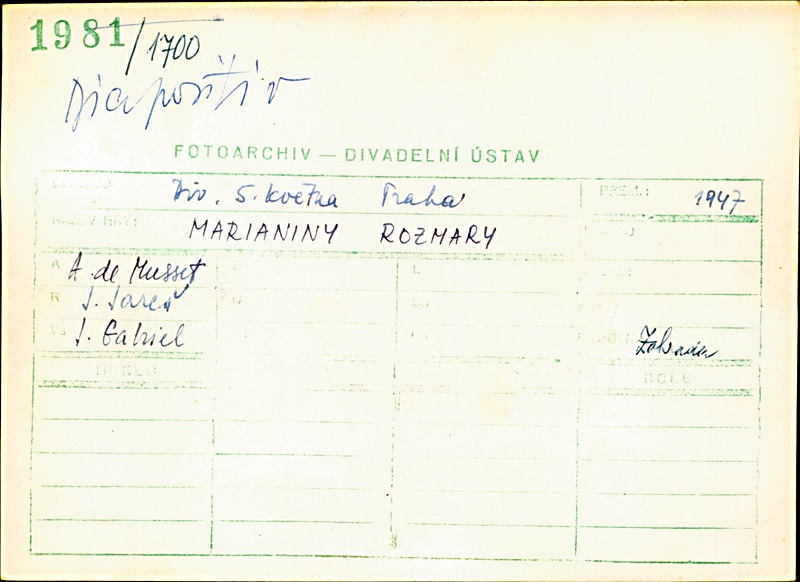 1981/1700
Diapozitiv
FOTOARCHIV — DIVADELNÍ ÚSTAV
Div. 5. května Praha
PREM.: 1947
NÁZEV HRY: MARIANINY ROZMARY
A A. de Musset
R J. Jareš
J. Gabriel
HEREC
ROLE